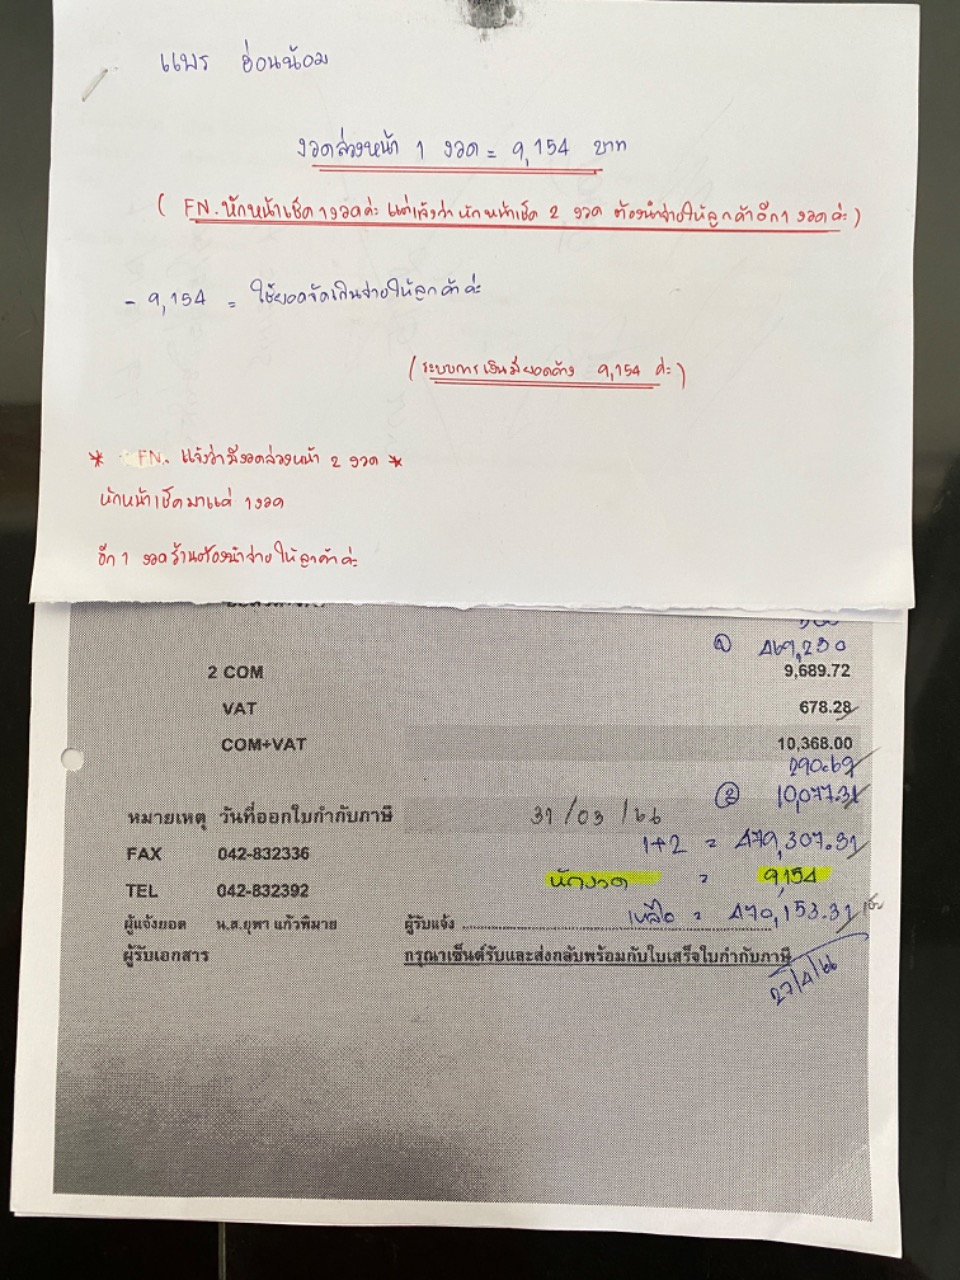 แพร อ่อนน้อม
งวดล่วงหน้า 1 งวด = 9,154 บาท
( FN. หักหน้าเช็ค 1 งวดค่ะ แต่แจ้งว่า หักหน้าเช็ค 2 งวด ต้องนำจ่ายให้ลูกค้าอีก 1 งวด ค่ะ )
- 9,154 = ใช้ยอดจัดเกินจ่ายให้ลูกค้า ค่ะ
( ระบบการเงินมียอดค้าง 9,154 ค่ะ )
* FN. แจ้งว่ามีงวดล่วงหน้า 2 งวด *
หักหน้าเช็คมาแค่ 1 งวด
อีก 1 งวด ร้านต้องนำจ่ายให้ลูกค้าค่ะ
① 469,230
2 COM 9,689.72
VAT 678.28
COM+VAT 10,368.00
290.69
② 10,077.31
หมายเหตุ วันที่ออกใบกำกับภาษี 31/03/66
1+2 = 479,307.31
FAX 042-832336
หักงวด = 9,154
TEL 042-832392
เหลือ = 470,153.31
ผู้แจ้งยอด น.ส.ยุพา แก้วพิมาย ผู้รับแจ้ง
ผู้รับเอกสาร กรุณาเซ็นต์รับและส่งกลับพร้อมกับใบเสร็จใบกำกับภาษี
27/4/66